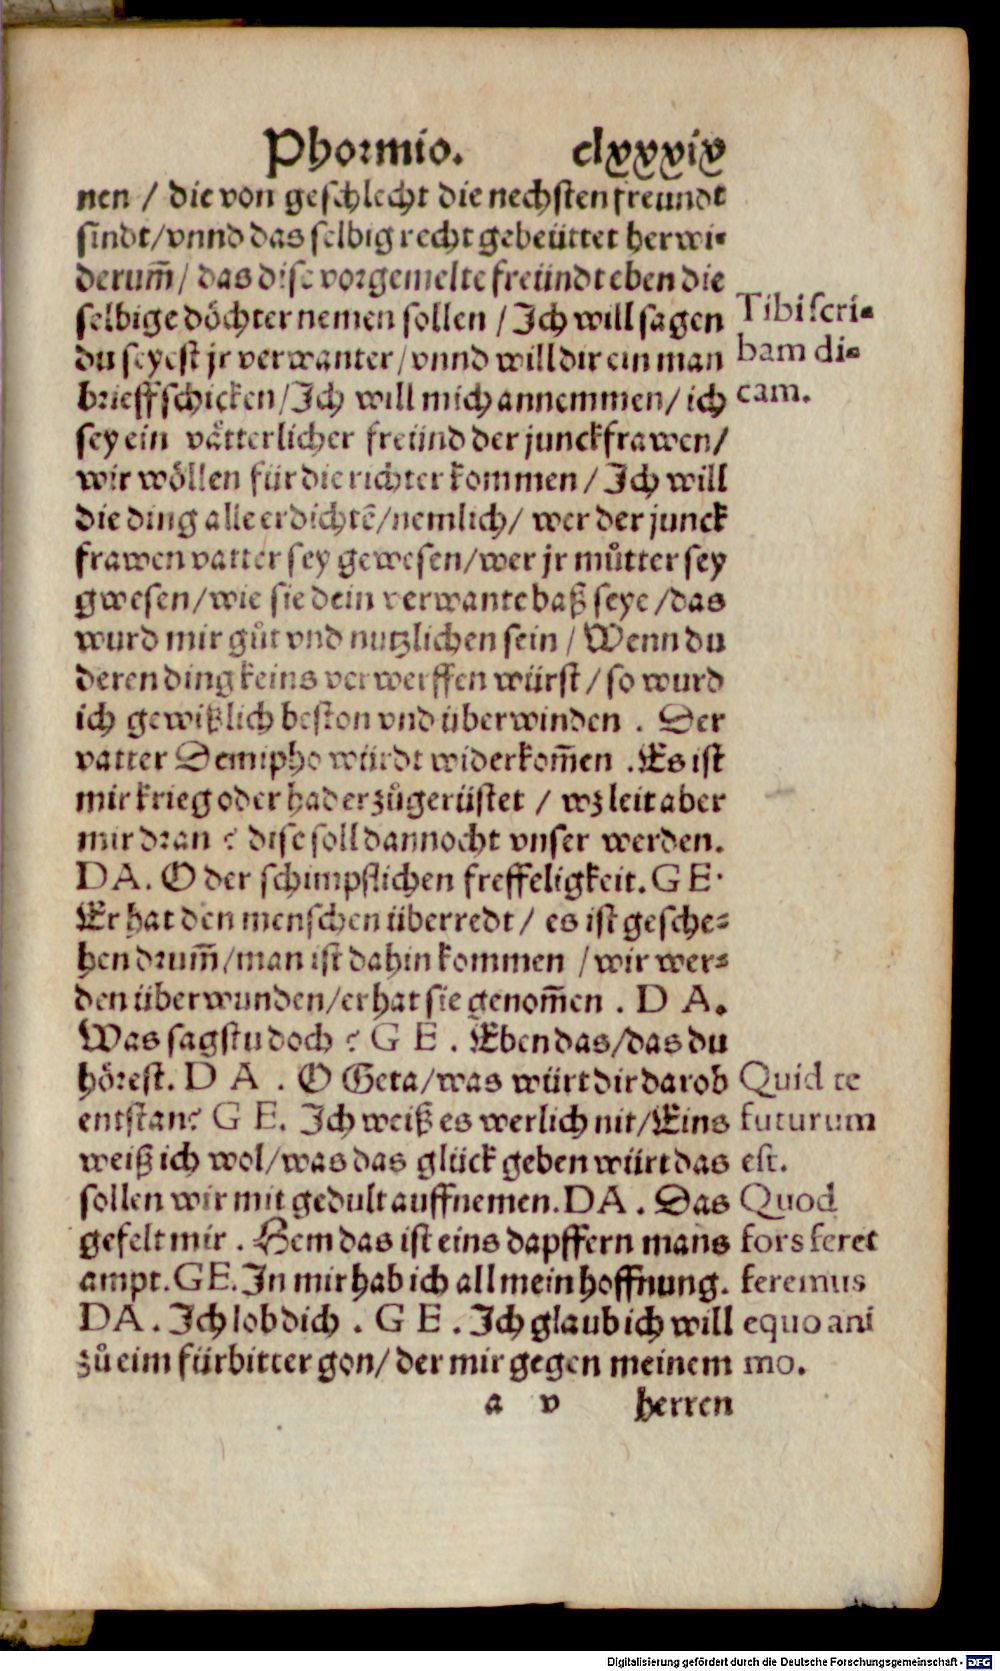 Phormio. clxxxix
nen / die von geschlecht die nechsten freundt
sindt/vnnd das selbig recht gebeüttet herwi-
derum̃/ das dise vorgemelte freündt eben die
selbige döchter nemen sollen / Ich will sagen
du seyest jr verwanter/vnnd will dir ein man
brieff schicken/Ich will mich annemmen/ ich
sey ein vätterlicher freünd der junckfrawen/
wir wöllen für die richter kommen / Ich will
die ding alle erdichtẽ/nemlich/ wer der junck
frawen vatter sey gewesen/wer jr můtter sey
gwesen/wie sie dein verwante baß seye /das
wurd mir gůt vnd nutzlichen sein / Wenn du
deren ding keins verwerffen würst / so wurd
ich gewißlich beston vnd überwinden . Der
vatter Demipho würdt widerkom̃en . Es ist
mir krieg oder hader zůgerüstet / wz leit aber
mir dran ? dise soll dannocht vnser werden.
DA. O der schimpflichen freffeligkeit. GE.
Er hat den menschen überredt / es ist gesche-
hen drum̃/man ist dahin kommen / wir wer-
den überwunden/er hat sie genom̃en . D A.
Was sagstu doch ? G E . Eben das/das du
hörest. D A . O Geta/was würt dir darob
entstan? G E. Ich weiß es werlich nit/Eins
weiß ich wol/was das glück geben würt das
sollen wir mit gedult auffnemen. DA . Das
gefelt mir . Hem das ist eins dapffern mans
ampt. GE. In mir hab ich all mein hoffnung.
DA . Ich lob dich . G E . Ich glaub ich will
zů eim fürbitter gon/ der mir gegen meinem
a v herren
Tibi scri-
bam di-
cam.
Quid te
futurum
est.
Quod
fors feret
feremus
equo ani
mo.
Digitalisierung gefördert durch die Deutsche Forschungsgemeinschaft - DFG